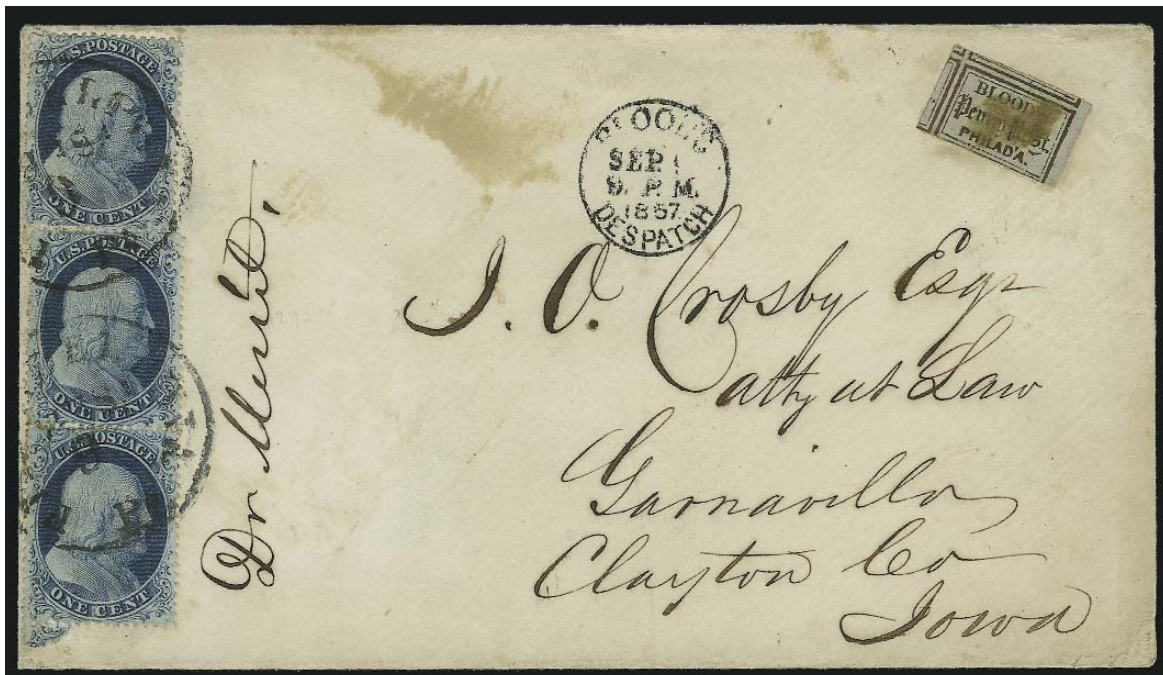 U.S. POSTAGE
ONE CENT
U.S. POSTAGE
ONE CENT
U.S. POSTAGE
ONE CENT
BLOOD'S
SEP
9. P.M.
1857
DESPATCH
BLOOD'S
Penny Post.
PHILAD'A.
J. O. Crosby Esqr
atty at Law
Garnavillo
Clayton Co
Iowa
Dr